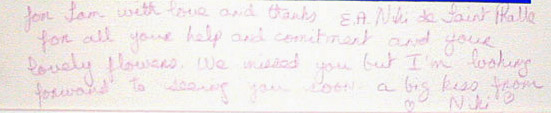 for Sam with love and thanks E.A. Niki de Saint Phalle
for all your help and comitment and your
lovely flowers. We missed you but I'm looking
forward to seeing you soon a big kiss from
♡ Niki ♡